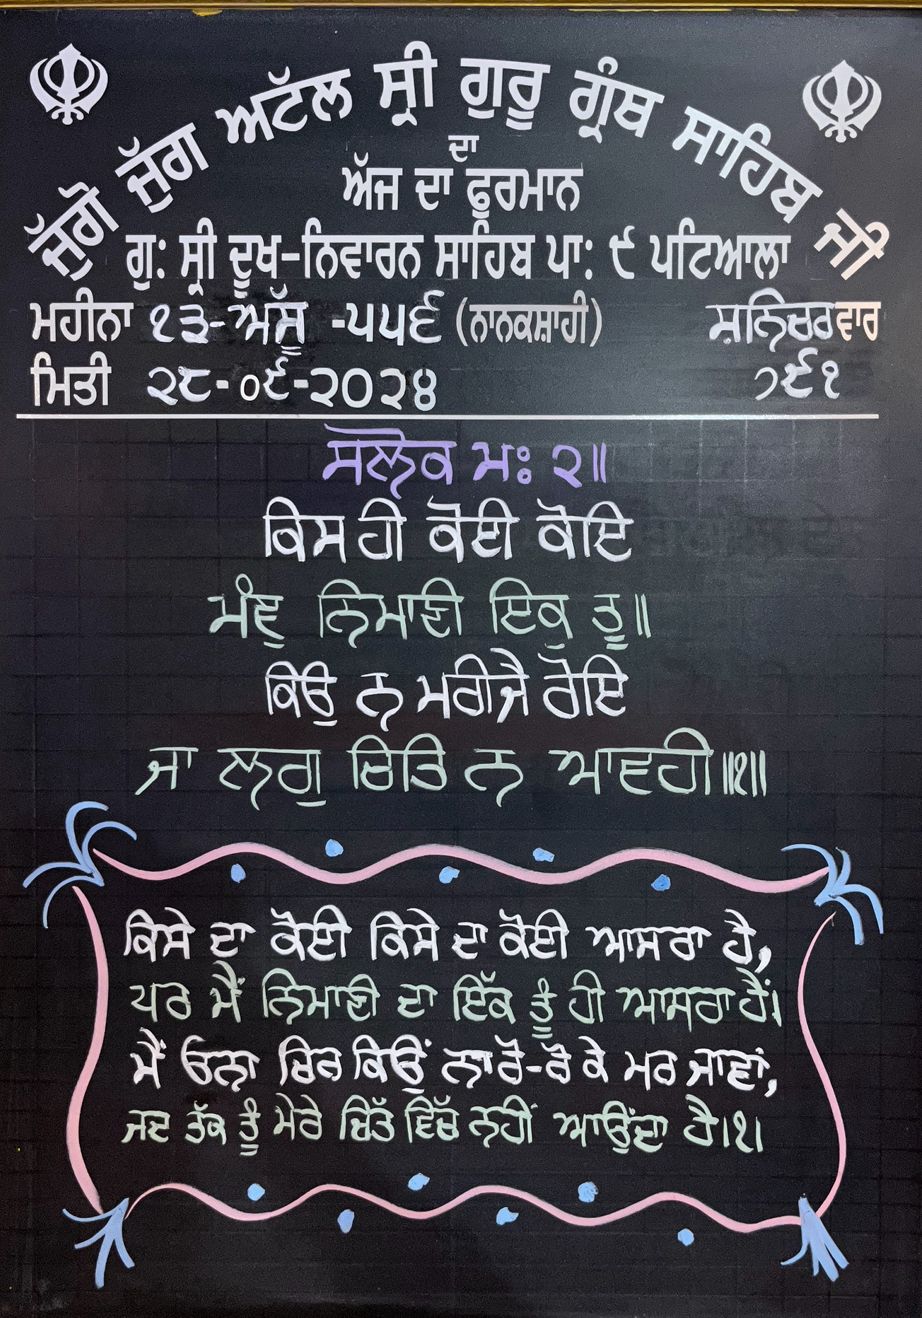 ਜੁੱਗੋ ਜੁੱਗ ਅਟੱਲ ਸ਼੍ਰੀ ਗੁਰੂ ਗ੍ਰੰਥ ਸਾਹਿਬ ਜੀ
ਦਾ
ਅੱਜ ਦਾ ਫੁਰਮਾਨ
ਗੁ: ਸ਼੍ਰੀ ਦੂਖ-ਨਿਵਾਰਨ ਸਾਹਿਬ ਪਾ: ੯ ਪਟਿਆਲਾ
ਮਹੀਨਾ ੧੩-ਅੱਸੂ -੫੫੬ (ਨਾਨਕਸ਼ਾਹੀ) ਸ਼ਨਿਚਰਵਾਰ
ਮਿਤੀ ੨੮-੦੯-੨੦੨੪ ੭੯੧
ਸਲੋਕ ਮਃ ੨॥
ਕਿਸ ਹੀ ਕੋਈ ਕੋਇ
ਮੰਞੁ ਨਿਮਾਣੀ ਇਕੁ ਤੂ॥
ਕਿਉ ਨ ਮਰੀਜੈ ਰੋਇ
ਜਾ ਲਗੁ ਚਿਤਿ ਨ ਆਵਹੀ॥੧॥
ਕਿਸੇ ਦਾ ਕੋਈ ਕਿਸੇ ਦਾ ਕੋਈ ਆਸਰਾ ਹੈ,
ਪਰ ਮੈਂ ਨਿਮਾਣੀ ਦਾ ਇੱਕ ਤੂੰ ਹੀ ਆਸਰਾ ਹੈਂ।
ਮੈਂ ਓਨਾ ਚਿਰ ਕਿਉਂ ਨਾ ਰੋ-ਰੋ ਕੇ ਮਰ ਜਾਵਾਂ,
ਜਦ ਤੱਕ ਤੂੰ ਮੇਰੇ ਚਿੱਤ ਵਿੱਚ ਨਹੀਂ ਆਉਂਦਾ ਹੈ।੧।